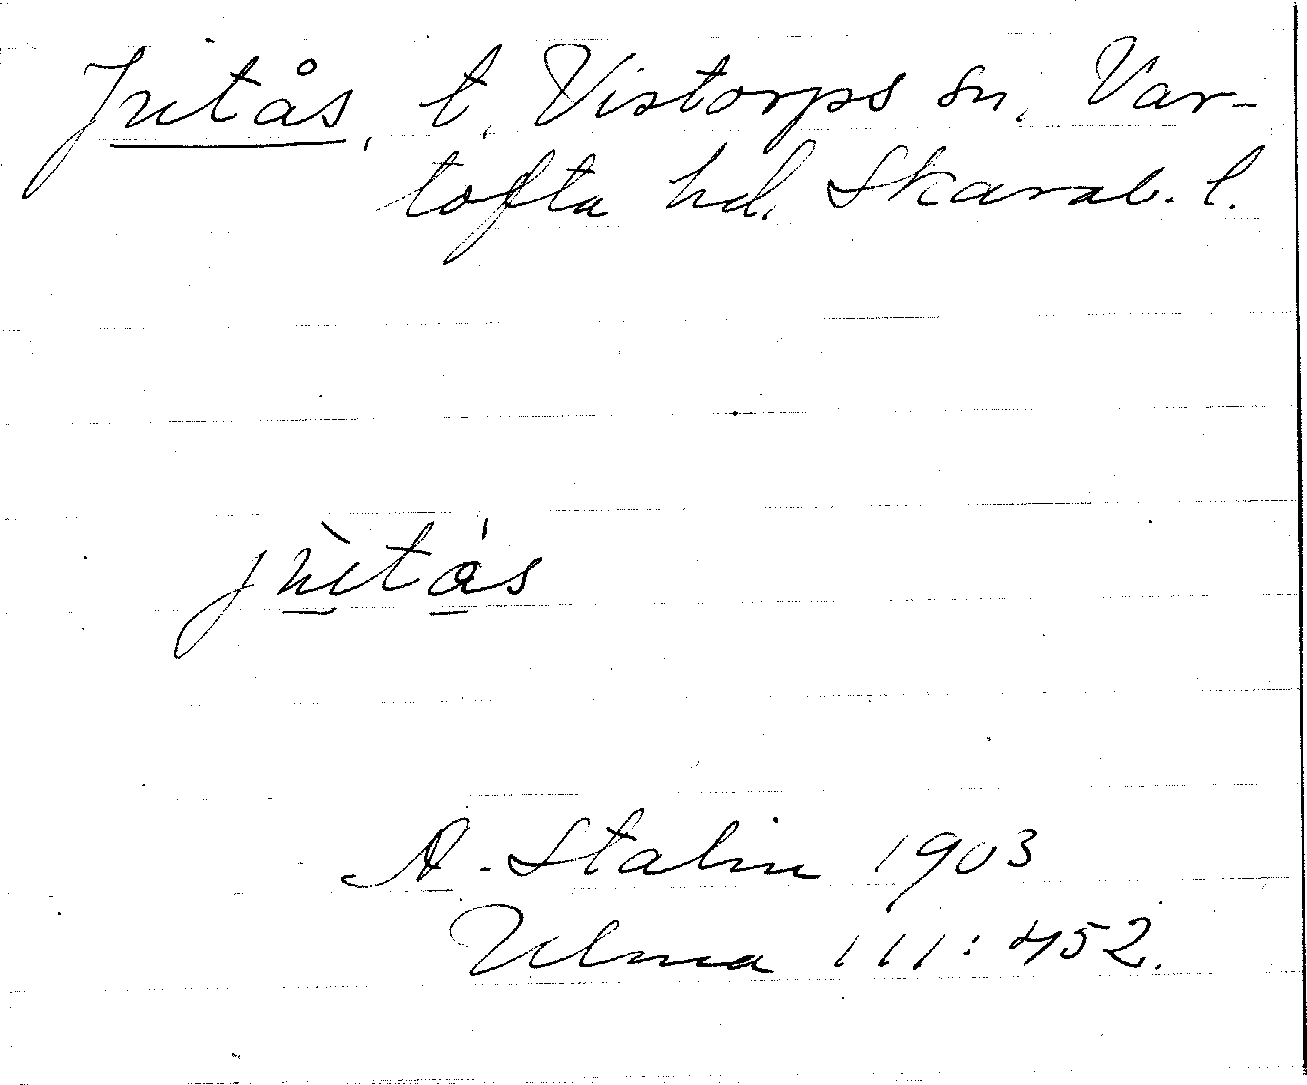 Jutås, t. Vistorps sn, Var-
tofta hd. Skarab. l.
jùtás
A. Stalin 1903
Ulma 111:452.